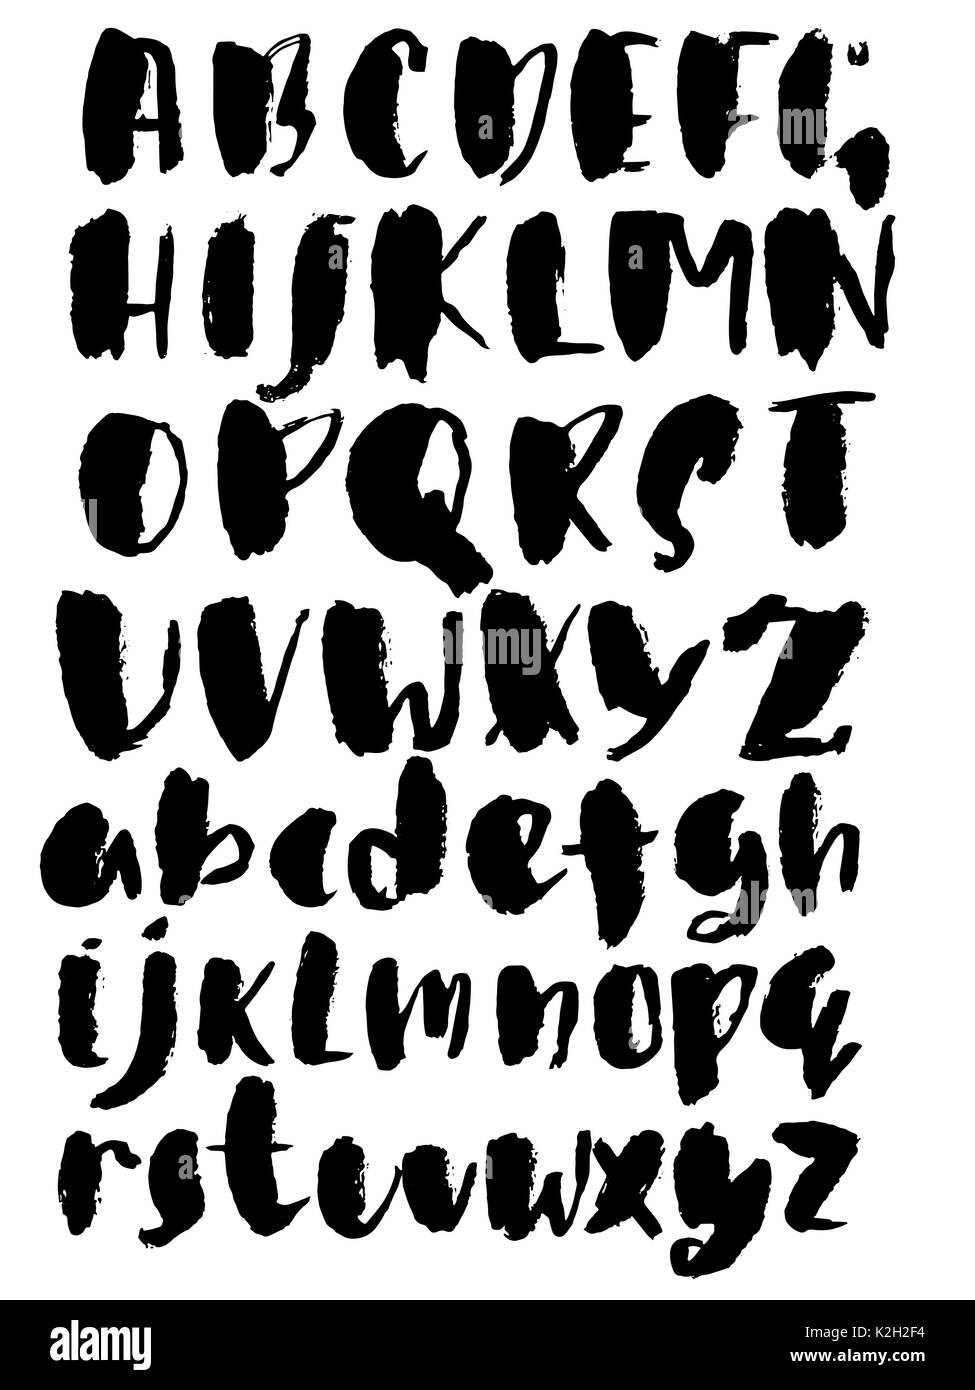 ABCDEFG
HIJKLMN
OPQRST
UVWXYZ
abcdefgh
ijklmnopq
rstuvwxyz
alamy stock photo
K2H2F4
www.alamy.com